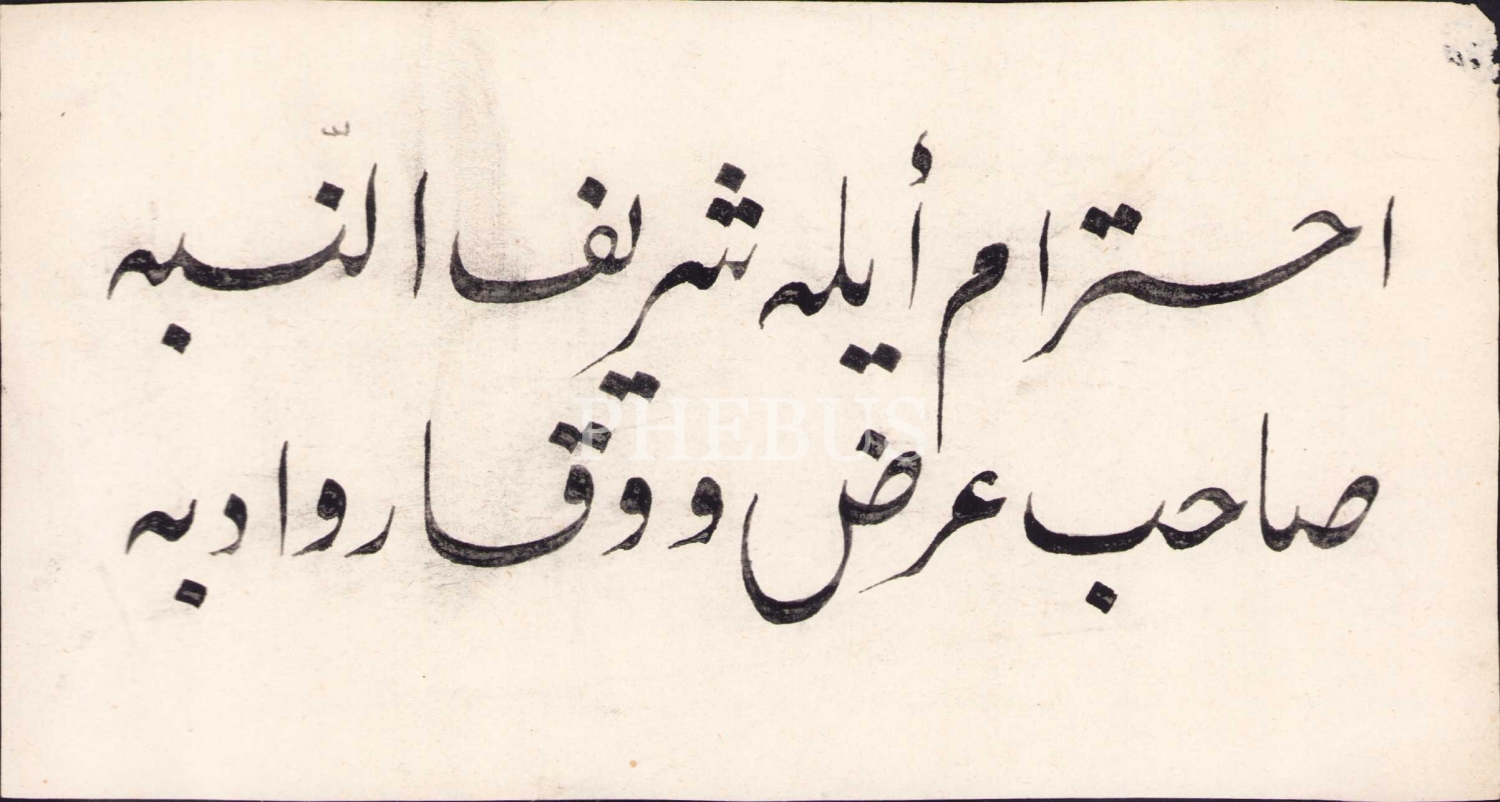 احترام أيله شريف النّسبه
صاحب عرض و وقار و ادبه
PHEBUS